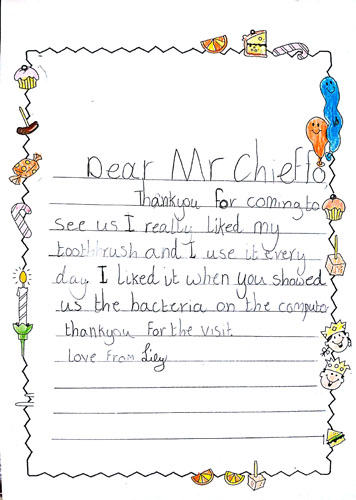 Dear Mr Chieffo
Thankyou for coming to
see us I really liked my
toothbrush and I use it every
day I liked it when you showed
us the bacteria on the computo
thankyou for the visit
love from Lily